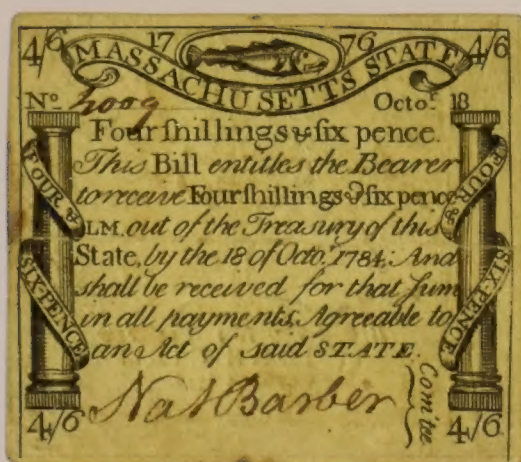 4/6 17 76 4/6
MASSACHUSETTS STATE
No. 2009 Octo.r 18
Four ſhillings & ſix pence.
This Bill entitles the Bearer
to receive Four ſhillings & ſix pence
LM. out of the Treasury of this
State, by the 18 of Octo.r 1784. And
ſhall be received for that ſum
in all payments, Agreeable to
an Act of said STATE.
FOUR &
SIX-PENCE
FOUR &
SIX-PENCE
Nat Barber
Com'tee
4/6 4/6